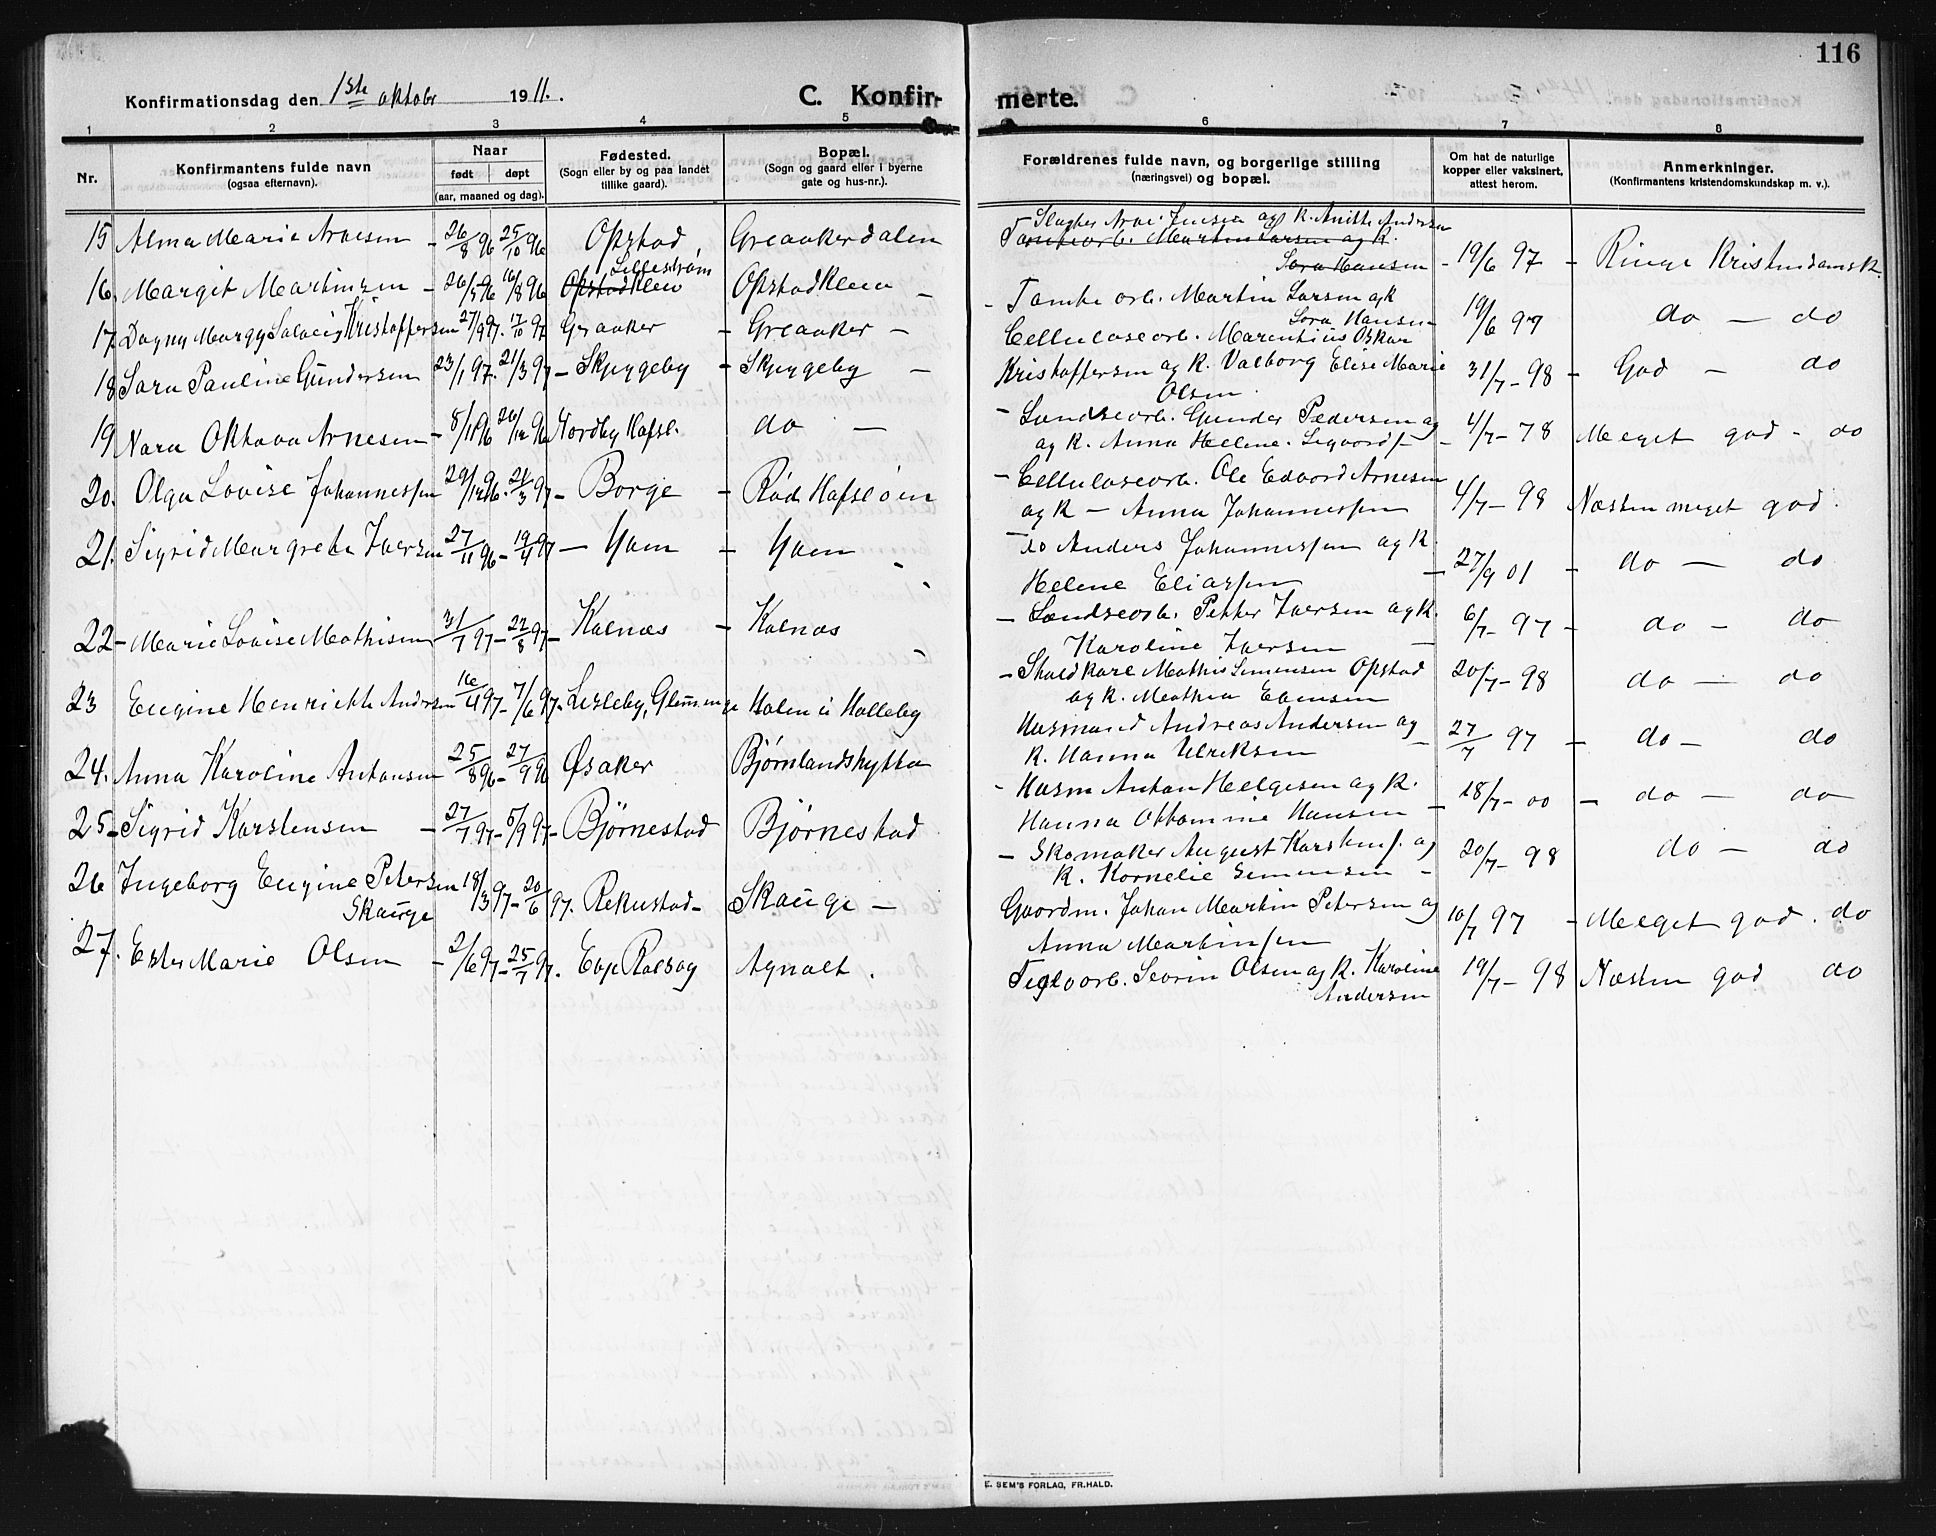 116
Konfirmationsdag den 1ste oktober 1911.
C. Konfirmerte.
1 2 3 4 5 6 7 8
Nr.
Konfirmantens fulde navn
(ogsaa efternavn).
Naar
født døpt
(aar, maaned og dag).
Fødested.
(Sogn eller by og paa landet
tillike gaard).
Bopæl.
(Sogn og gaard eller i byerne
gate og hus-nr.).
Forældrenes fulde navn, og borgerlige stilling
(næringsvei) og bopæl.
Om hat de naturlige
kopper eller vaksinert,
attest herom.
Anmerkninger.
(Konfirmantens kristendomskundskap m. v.).
15 Alma Marie Arnesen - 26/8 96 25/10 96 Opstad, Greaakerdalen
Slagter Arne Jensen og K. Anette Andersen
Tomteorb. Martin Larsen og K.
Sara Hansen - 19/6 97 - Ringe Kristendomsk.
16. Margit Martinsen - 26/5 96 16/8 96 Opstadkleiv Lillestrøm Opstadkleiv -
- Tomte orb. Martin Larsen og K
Sara Hansen - 19/6 97 do - do
17. Dagny Margy Solveig Kristoffersen 27/9 97. 17/10 97 Graaker - Greaaker -
Celluloseorb. Marentius Oskar
Kristoffersen og K. Valborg Elise Marie
Olsen 31/7 - 98 - God - do
18 Sara Pauline Gundersen 23/1 97. 21/3 97 - Skjyggeby - Skjyggeby -
- Landseorb. Gunder Pedersen og
og K. Anna Helene Sigvards - 4/7 - 78 Meeget god - do
19 Nora Oktava Arnesen - 8/11 96 26/12 96 Nordby Hafsl. do -
- Celluloseorb. Ole Edvard Arnesen
og K - Anna Johannessen 4/7 - 98 Næsten meget god.
20. Olga Lovise Johannessen 29/12 96. 21/3 97 - Borge - Rød Hafsløen
- do Anders Johannessen og K.
Helene Eliassen - 27/9 01 - do - do
21. Sigrid Margrete Iversen 27/11 96 - 19/4 97 - Yven - Yven -
- Landseorb. Petter Iversen og K.
Karoline Iversen - 6/7 - 97 - do - do
22 - Marie Lovise Mathisen 31/7 97 - 22/8 97 - Kalnæs - Kalnæs -
- Skuldkarl Mathis Simensen Opstad
og K. Mathea Evensen 20/7 - 98 do - do
23 Eugine Henriette Andersen 16/4 97 - 7/6 97 - Lisleby, Glemmenge Halen i Halleby
Husmand Andreas Andersen og
K. Hanna Ulriksen - 27/7 97 - do - do
24. Anna Karoline Antonsen 25/8 96 - 27/9 96 Øsaker Bjørnlandshytta
- Husm Anton Helgesen og K.
Hanna Ottomine Hansen - 18/7 - 00 - do - do
25 - Sigrid Karstensen - 27/7 97 - 5/9 97 - Bjørnestad Bjørnestad
- Skomaker August Karstens. og
K. Kornelie Simensen - 20/7 - 98 do - do
26 Ingeborg Eugine Petersen
Skauge 18/3 97 - 20/6 97. Rekustad - Skauge -
Gaardm. Johan Martin Petersen og
Anna Martinsen 10/7 97 - Meeget god. do
27. Ester Marie Olsen - 2/6 97 - 25/7 97. Evje Rolsøy Agnalt.
Teglvorb. Severin Olsen og K. Karoline
Andersen 19/7 - 98 Næsten god do
E. SEM'S FORLAG, FR.HALD.